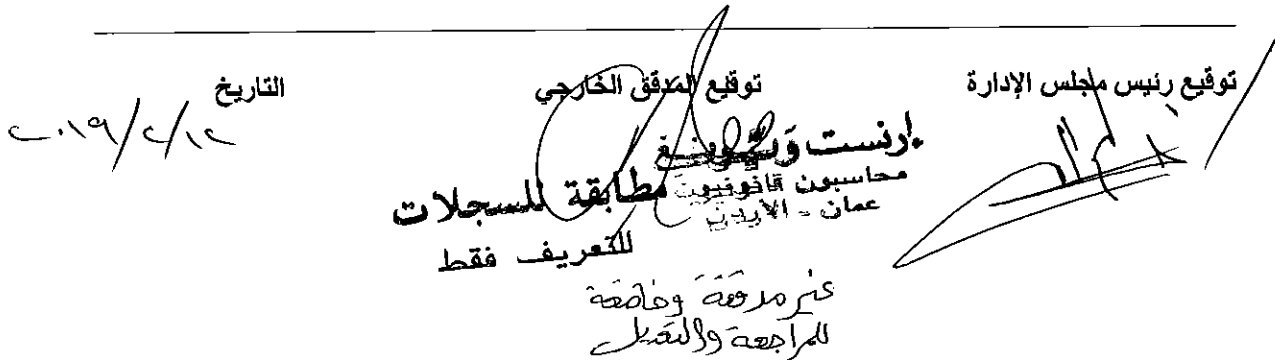 توقيع رئيس مجلس الإدارة
توقيع المدقق الخارجي
التاريخ
٢٠١٩/٢/١٢
إرنست ويونغ
محاسبون قانونيون
عمان - الأردن
مطابقة للسجلات
للتعريف فقط
غير مدققة وخاضعة
للمراجعة والتعديل